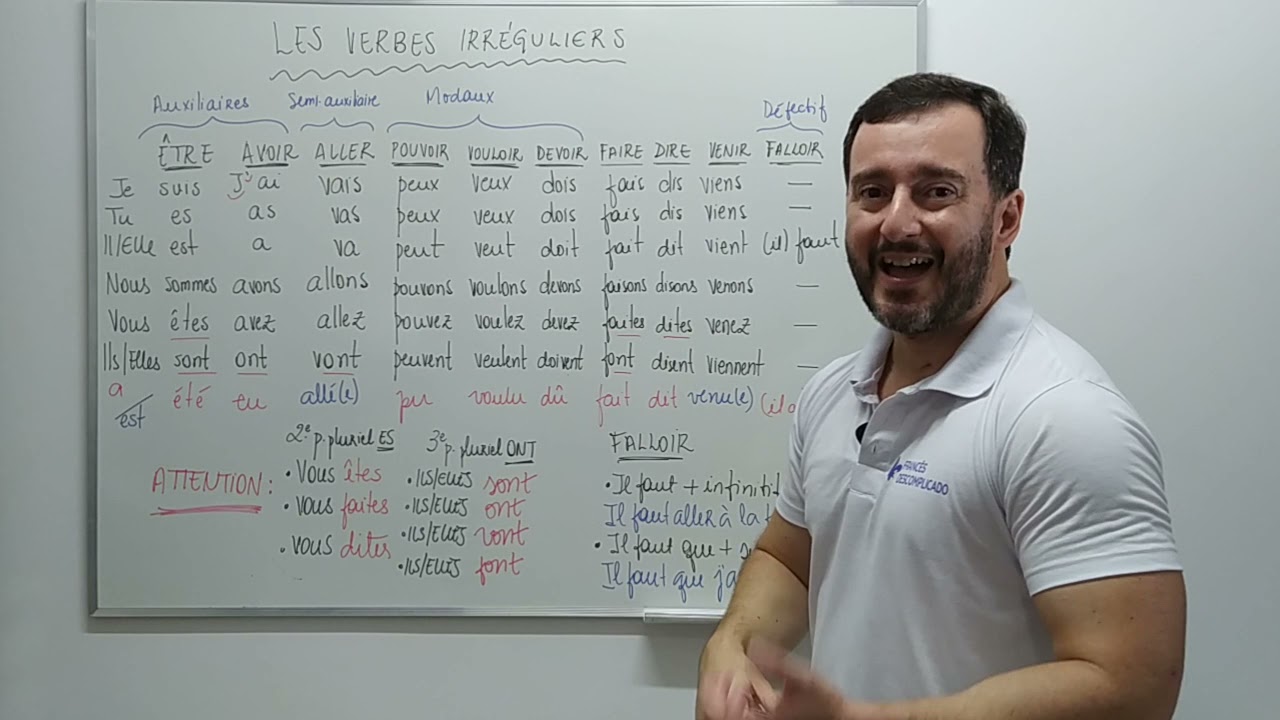 LES VERBES IRRÉGULIERS
Auxiliaires Semi-auxiliaire Modaux Défectif
ÊTRE AVOIR ALLER POUVOIR VOULOIR DEVOIR FAIRE DIRE VENIR FALLOIR
Je suis J'ai vais peux veux dois fais dis viens —
Tu es as vas peux veux dois fais dis viens —
Il/Elle est a va peut veut doit fait dit vient (il) faut
Nous sommes avons allons pouvons voulons devons faisons disons venons —
Vous êtes avez allez pouvez voulez devez faites dites venez —
Ils/Elles sont ont vont peuvent veulent doivent font disent viennent —
a été eu allé(e) pu voulu dû fait dit venu(e) (il a
est
2e p. pluriel ES 3e p. pluriel ONT FALLOIR
ATTENTION:
• Vous êtes • ILS/ELLES sont • Il faut + infinitif
• Vous faites • ILS/ELLES ont Il faut aller à la
• Vous dites • ILS/ELLES vont • Il faut que +
• ILS/ELLES font Il faut que j'a
FRANCÊS
DESCOMPLICADO